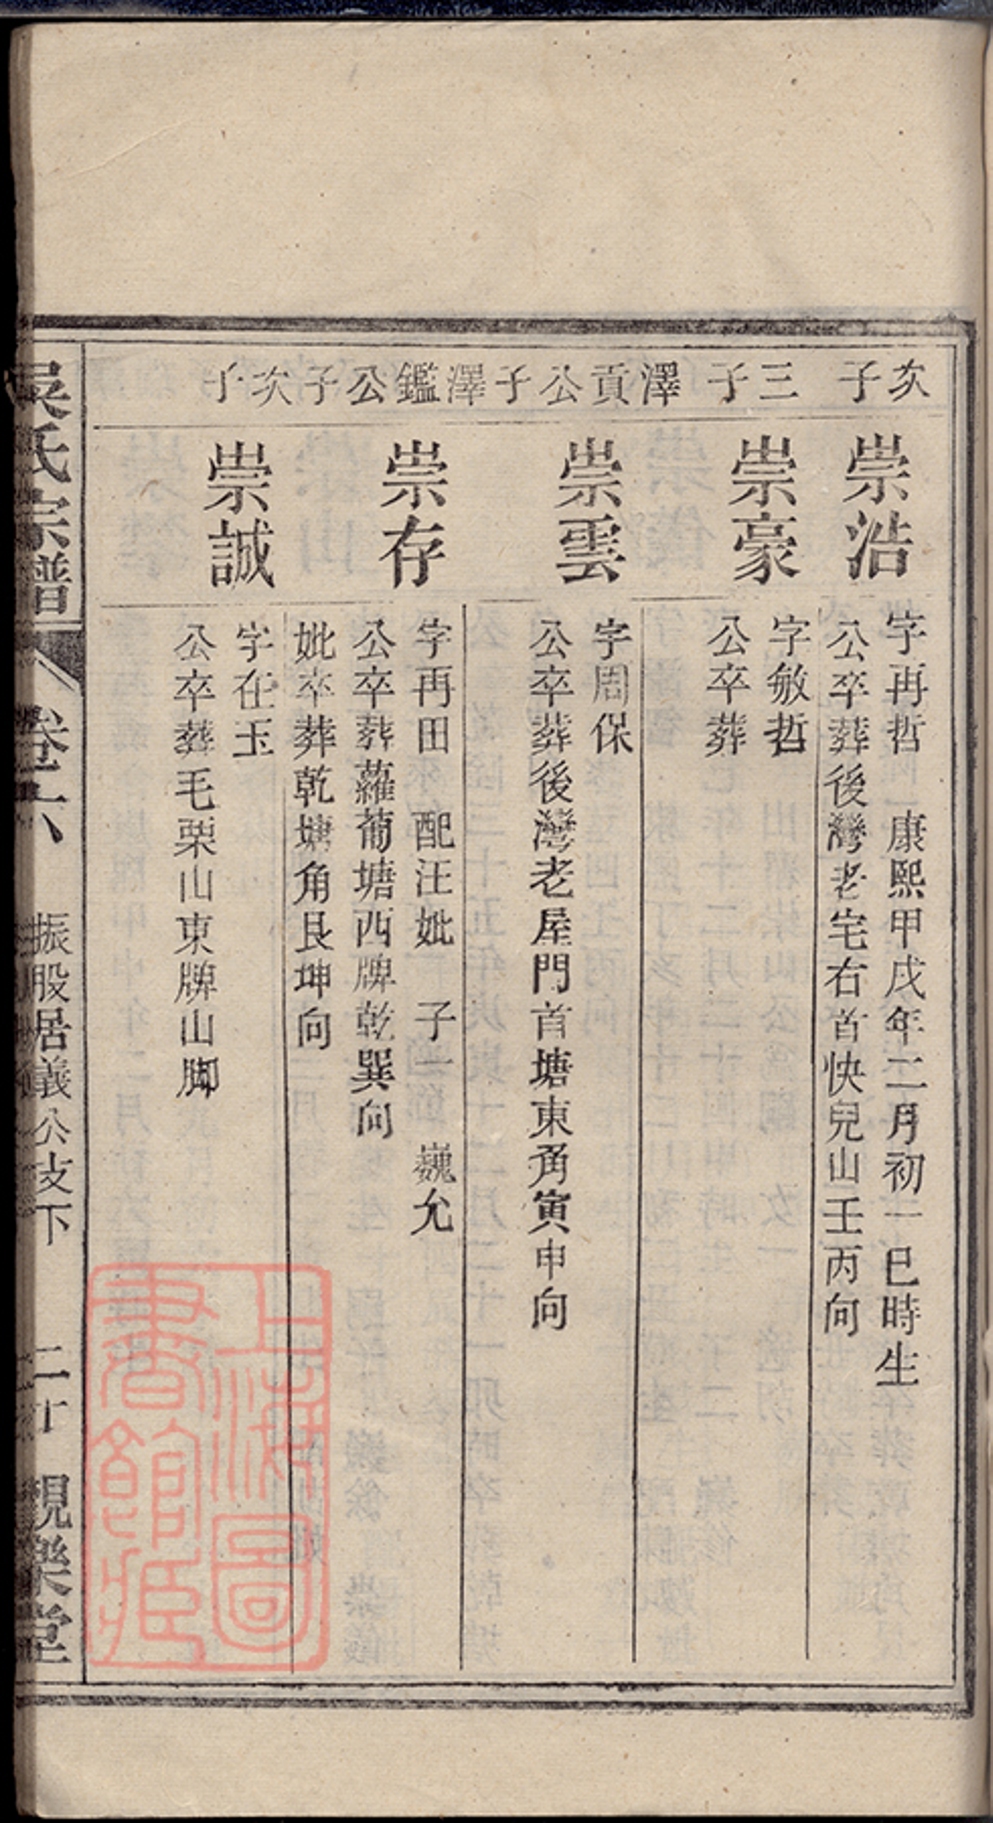 次子
崇浩
字再哲 康熙甲戌年二月初一巳時生
公卒葬後灣老宅右首快兒山壬丙向
三子
崇豪
字敏哲
公卒葬
澤貢公子
崇雲
字周保
公卒葬後灣老屋門首塘東角寅申向
澤鑑公子
崇存
字再田 配汪妣 子一 巍允
公卒葬蘿蔔塘西牌乾巽向
妣卒葬乾塘角艮坤向
次子
崇誠
字在玉
公卒葬毛栗山東牌山脚
吳氏宗譜 卷六 振股居義公支下 二十 觀樂堂
上海圖
書館藏